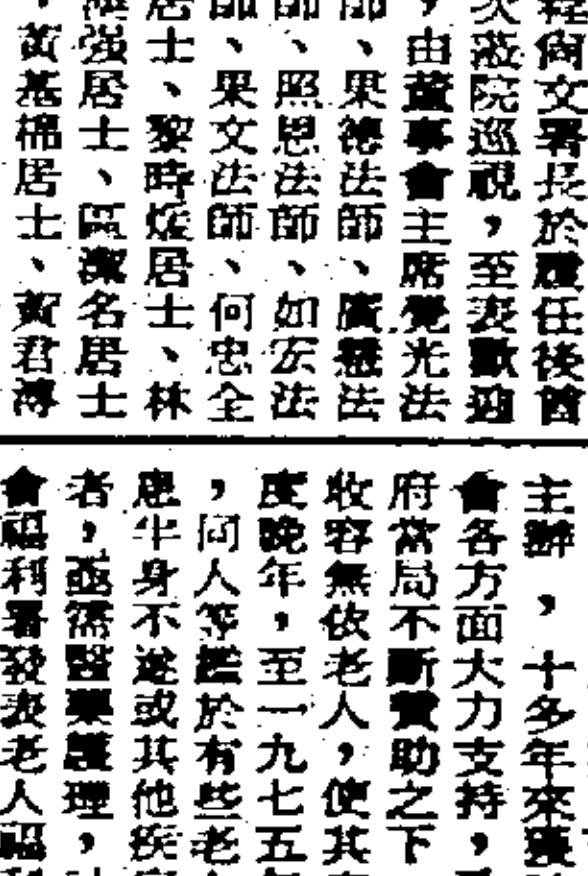 程尙文署長於履任後首
次蒞院巡視，至表歡迎
，由董事會主席覺光法
師、果德法師、廣慧法
師、照恩法師、如宏法
師、果文法師、何忠全
居士、黎時煖居士、林
強居士、區潔名居士
，黃基棉居士、黃君溥
主辦，十多年來獲
會各方面大力支持，
府當局不斷贊助之下
收容無依老人，使其
度晚年，至一九七五年
，同人等鑑於有些老
患半身不遂或其他疾
者，亟需醫藥護理，
會福利署發表老人福利